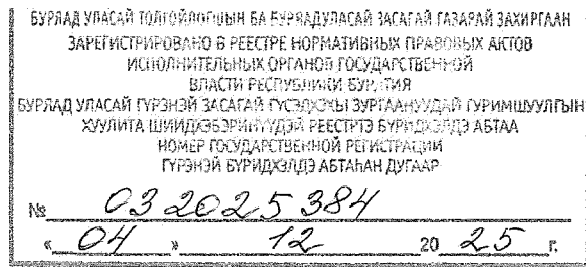 БУРЯАД УЛАСАЙ ТОЛГОЙЛОГШЫН БА БУРЯАД УЛАСАЙ ЗАСАГАЙ ГАЗАРАЙ ЗАХИРГААН
ЗАРЕГИСТРИРОВАНО В РЕЕСТРЕ НОРМАТИВНЫХ ПРАВОВЫХ АКТОВ
ИСПОЛНИТЕЛЬНЫХ ОРГАНОВ ГОСУДАРСТВЕННОЙ
ВЛАСТИ РЕСПУБЛИКИ БУРЯТИЯ
БУРЯАД УЛАСАЙ ГҮРЭНЭЙ ЗАСАГАЙ ГҮСЭДХЭХЫ ЗУРГААНУУДАЙ ГУРИМШУУЛГЫН
ХУУЛИТА ШИИДХЭБЭРИНҮҮДЭЙ РЕЕСТРТЭ БҮРИДХЭЛДЭ АБТАА
НОМЕР ГОСУДАРСТВЕННОЙ РЕГИСТРАЦИИ
ГҮРЭНЭЙ БҮРИДХЭЛДЭ АБТАҺАН ДУГААР
№ 032025384
« 04 » 12 20 25 г.